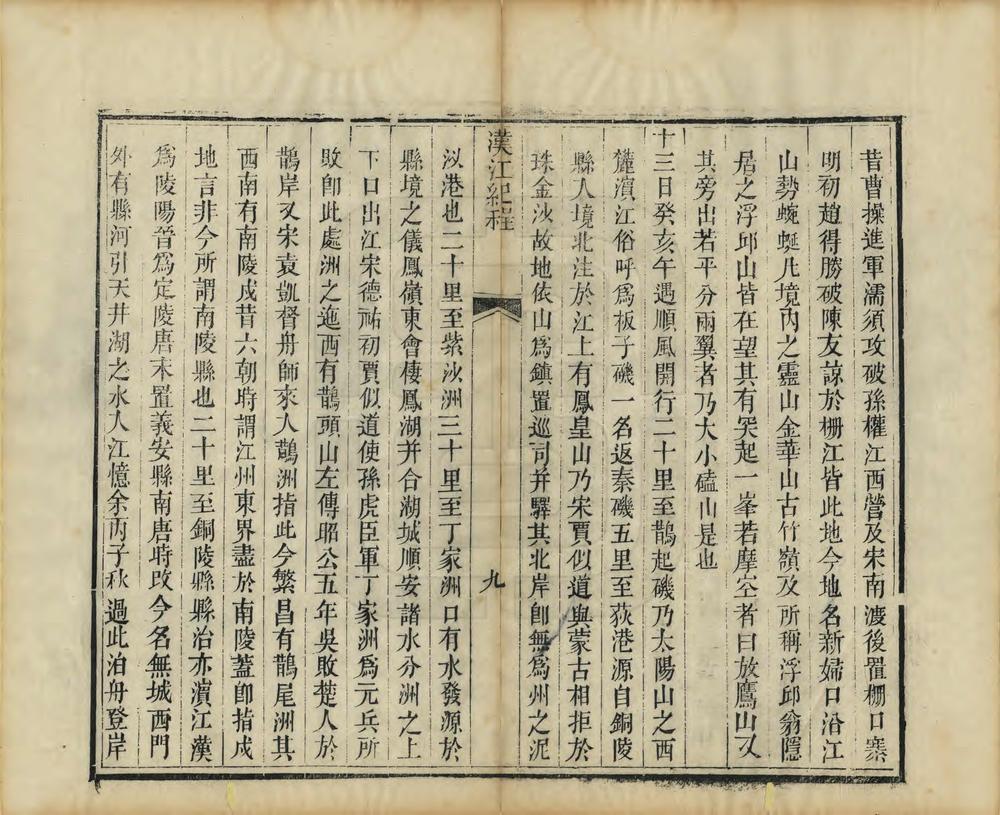 昔曹操進軍濡須攻破孫權江西營及宋南渡後置柵口寨
明初趙得勝破陳友諒於柵江皆此地今地名新婦口沿江
山勢蜿蜒凡境內之靈山金華山古竹嶺及所稱浮邱翁隱
居之浮邱山皆在望其有突起一峯若摩空者曰放鷹山又
其旁出若平分兩翼者乃大小磕山是也
十三日癸亥午遇順風開行二十里至鵲起磯乃太陽山之西
麓濱江俗呼爲板子磯一名返秦磯五里至荻港源自銅陵
縣入境北注於江上有鳳皇山乃宋賈似道與蒙古相拒於
珠金沙故地依山爲鎮置巡司并驛其北岸卽無爲州之泥
漢江紀程
九
汊港也二十里至紫沙洲三十里至丁家洲口有水發源於
縣境之儀鳳嶺東會棲鳳湖并合湖城順安諸水分洲之上
下口出江宋德祐初賈似道使孫虎臣軍丁家洲爲元兵所
敗卽此處洲之迤西有鵲頭山左傳昭公五年吳敗楚人於
鵲岸又宋袁凱督舟師來入鵲洲指此今繁昌有鵲尾洲其
西南有南陵戍昔六朝時謂江州東界盡於南陵蓋卽指戍
地言非今所謂南陵縣也二十里至銅陵縣縣治亦濱江漢
爲陵陽晉爲定陵唐末置義安縣南唐時改今名無城西門
外有縣河引天井湖之水入江憶余丙子秋過此泊舟登岸